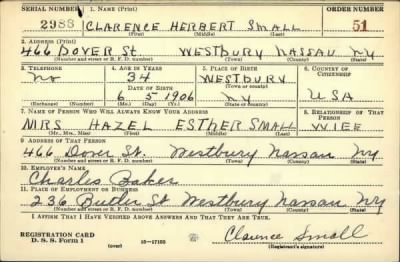 SERIAL NUMBER 1. NAME (Print) ORDER NUMBER
2988 CLARENCE HERBERT SMALL 51
(First) (Middle) (Last)
2. ADDRESS (Print)
466 DOVER St. WESTBURY NASSAU NY
(Number and street or R. F. D. number) (Town) (County) (State)
3. TELEPHONE 4. AGE IN YEARS 5. PLACE OF BIRTH 6. COUNTRY OF CITIZENSHIP
No 34 WESTBURY
DATE OF BIRTH (Town or county)
6 5 1906 NY USA
(Exchange) (Number) (Mo.) (Day) (Yr.) (State or country)
7. NAME OF PERSON WHO WILL ALWAYS KNOW YOUR ADDRESS 8. RELATIONSHIP OF THAT PERSON
MRS HAZEL ESTHER SMALL WIFE
(Mr., Mrs., Miss) (First) (Middle) (Last)
9. ADDRESS OF THAT PERSON
466 Dover St. Westbury Nassau NY
(Number and street or R. F. D. number) (Town) (County) (State)
10. EMPLOYER'S NAME
Charles Baker
11. PLACE OF EMPLOYMENT OR BUSINESS
236 Butler St Westbury Nassau NY
(Number and street or R. F. D. number) (Town) (County) (State)
I AFFIRM THAT I HAVE VERIFIED ABOVE ANSWERS AND THAT THEY ARE TRUE.
REGISTRATION CARD
D. S. S. Form 1 (over) 16—17105 Clarence Small
(Registrant's signature)